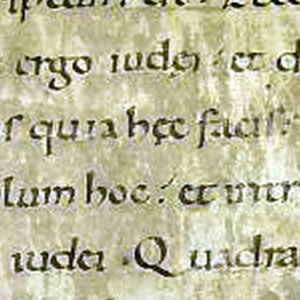 ergo iudęi : et d
s quia hęc facis :
lum hoc : et intr
iudei . Quadra